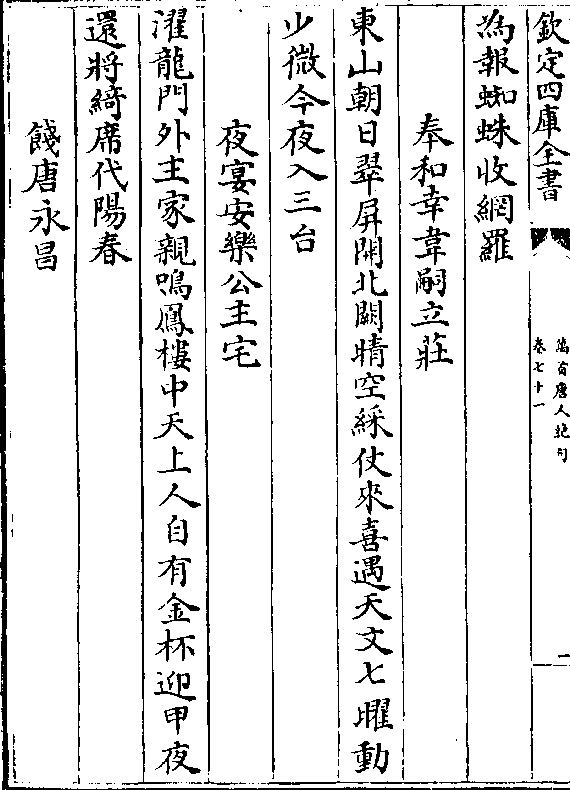 欽定四庫全書
萬首唐人絶句
卷七十一
一
為報蜘蛛收網羅
奉和幸韋嗣立莊
東山朝日翠屏開北闕晴空綵仗來喜遇天文七曜動
少微今夜入三台
夜宴安樂公主宅
濯龍門外主家親鳴鳳樓中天上人自有金杯迎甲夜
還將綺席代陽春
餞唐永昌